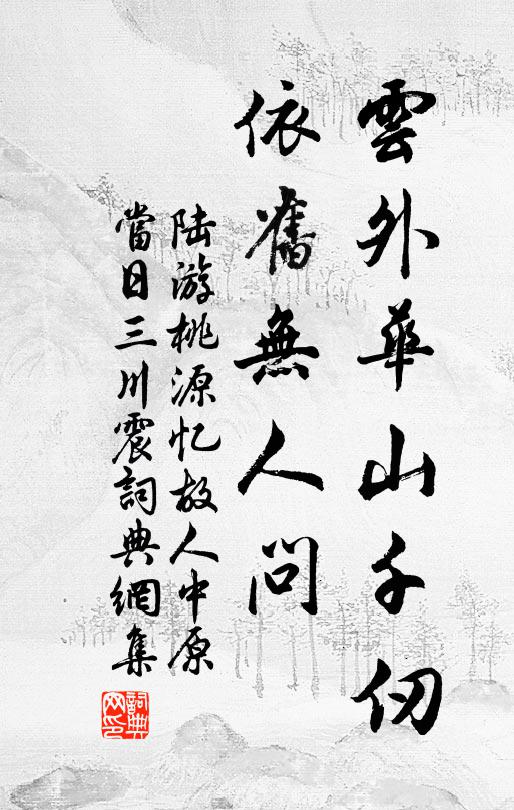 雲外華山千仞
依舊無人問
陆游桃源忆故人中原
當日三川震詞典網集
詞典网印